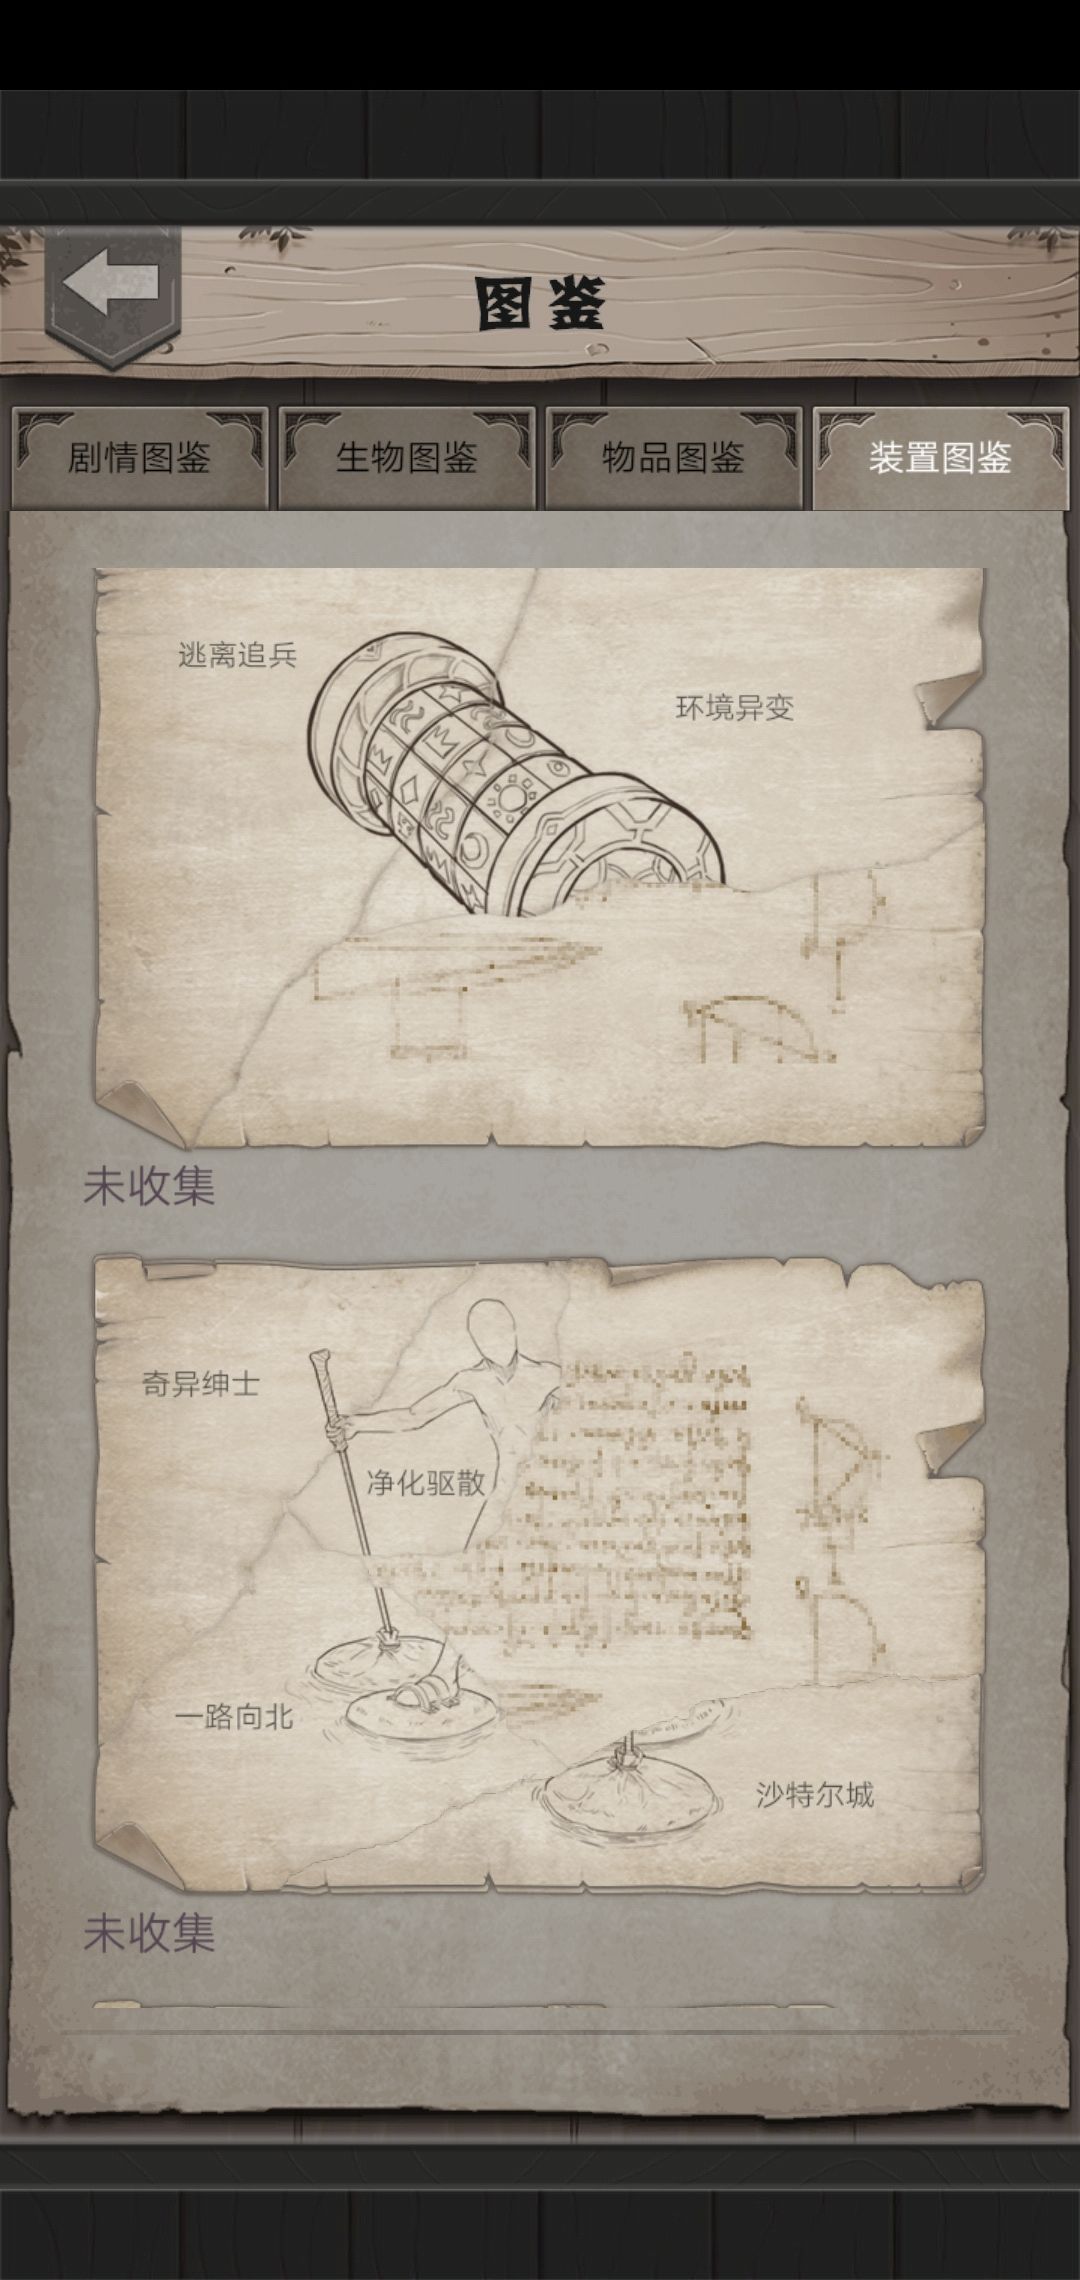 图鉴
剧情图鉴
生物图鉴
物品图鉴
装置图鉴
逃离追兵
环境异变
未收集
奇异绅士
净化驱散
一路向北
沙特尔城
未收集